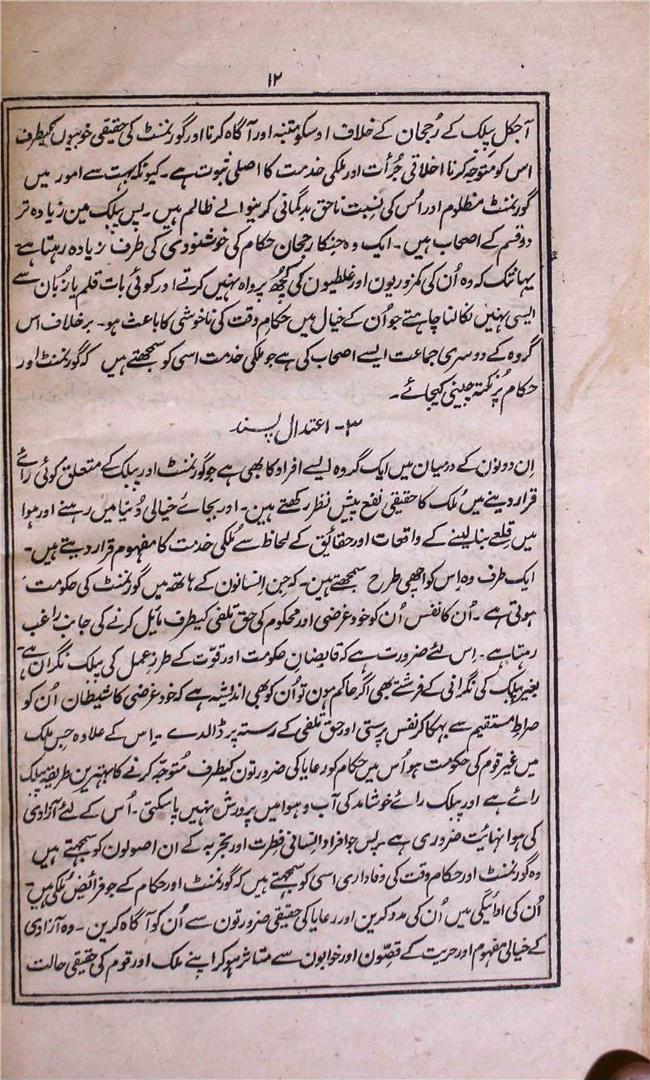 ۱۲
آجکل پبلک کے رُجحان کے خلاف اوسکو متنبہ اور آگاہ کرنا اور گورنمنٹ کی حقیقی خوبیوں کیطرف
اس کو متوجہ کرنا اخلاقی جُرأت اور ملکی خدمت کا اصلی ثبوت ہے۔ کیونکہ بہت سے امور میں
گورنمنٹ مظلوم اور اُس کی نسبت ناحق بدگمانی کرنیوالے ظالم ہیں۔ پس پبلک مین زیادہ تر
دو قسم کے اصحاب ہیں۔ ایک وہ جنکا رجحان حکام کی خوشنودی کی طرف زیادہ رہتا ہے
یہانتک کہ وہ اُن کی کمزوریون اور غلطیون کی کُچھ پرواہ نہیں کرتے اور کوئی بات قلم یا زُبان سے
ایسی نہیں نکالنا چاہتے جو اُن کے خیال میں حکام وقت کی ناخوشی کا باعث ہو۔ برخلاف اس
گروہ کے دوسری جماعت ایسے اصحاب کی ہے جو ملکی خدمت اسی کو سمجھتے ہیں کہ گورنمنٹ اور
حکام پُر نکتہ چینی کیجائے۔
۳۔ اعتدال پسند
اِن دونوُن کے درمیان میں ایک گروہ ایسے افراد کا بھی ہے جو گورنمنٹ اور پبلک کے متعلق کوئی رائے
قرار دینے میں مُلک کا حقیقی نفع پیشِ نظر رکھتے ہین۔ اور بجائے خیالی دُنیا میں رہنے اور ہوا
میں قلعے بنا لینے کے واقعات اور حقائق کے لحاظ سے مُلکی خدمت کا مفہوم قرار دیتے ہیں۔
ایک طرف وہ اِس کو اچھی طرح سمجھتے ہین۔ کہ جن اِنسانون کے ہاتھ میں گورنمنٹ کی حکومت
ہوتی ہے۔ اُن کا نفس اُن کو خود غرضی اور محکوم کی حق تلفی کیطرف مایٔل کرنے کی جانب راغب
رہتا ہے۔ اِس لئے ضرورت ہے کہ قابضان حکومت اور قوّت کے طرزِ عمل کی پبلک نگران ہے
بغیر پبلک کی نگرانی کے فرشتے بھی اگر حاکم ہون تو اُن کو بھی اندیشہ ہے کہ خود غرضی کا شیطان اُن کو
صراطِ مستقیم سے بہکا کر نفس پرستی اور حق تلفی کے رستہ پر ڈالدے۔ اِس کے علاوہ جس ملک
میں غیر قوم کی حکومت ہو اُس میں حکام کو رعایا کی ضرورتون کیطرف مُتوجّہ کرنے کا بہترین طریقہ پبلک
رائے ہے اور پبلک رائے خوشامد کی آب و ہوا میں پرورش نہیں پا سکتی۔ اُس کے لئے آزادی
کی ہوا نہائت ضروری ہے۔ پس جو افراد انسانی فطرت اور تجربہ کے ان اصولون کو سمجھتے ہیں
وہ گورنمنٹ اور حکام وقت کی وفاداری اسی کو سمجھتے ہیں کہ گورنمنٹ اور حکام کے جو فرائضِ مُلکی ہیں
اُن کی ادائیگی میں اُن کی مدد کرین اور رعایا کی حقیقی ضرورتون سے اُن کو آگاہ کرین۔ وہ آزادی
کے خیالی مفہوم اور حریت کے قصّون اور خوابون سے متاثر ہو کر اپنے ملک اور قوم کی حقیقی حالت